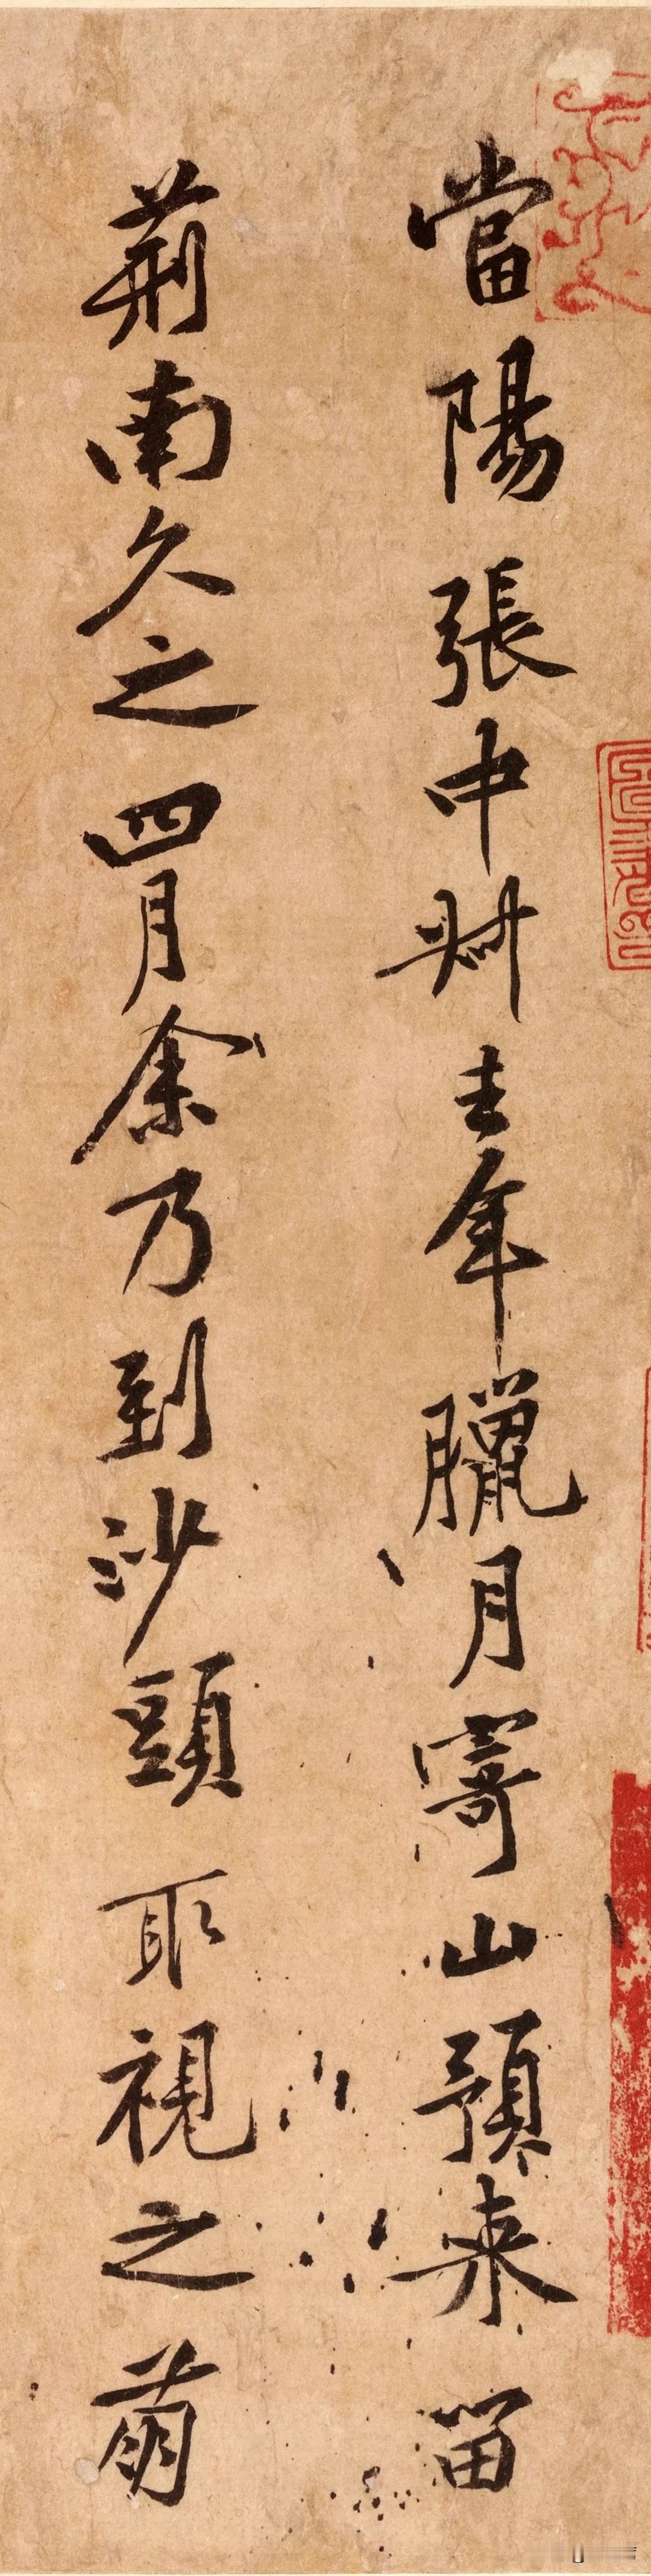 當陽張中叔去年臘月寄山預来留
荊南久之四月余乃到沙頭取視之萌